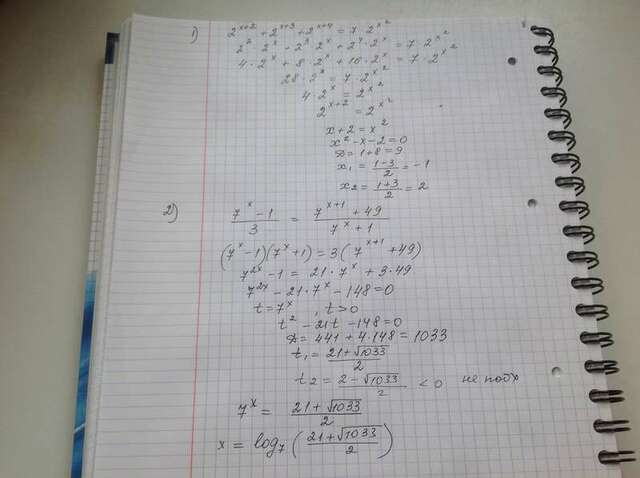 1) 2^{x+2} + 2^{x+3} + 2^{x+4} = 7 · 2^{x^2}
2^2 · 2^x + 2^3 · 2^x + 2^4 · 2^x = 7 · 2^{x^2}
4 · 2^x + 8 · 2^x + 16 · 2^x = 7 · 2^{x^2}
28 · 2^x = 7 · 2^{x^2}
4 · 2^x = 2^{x^2}
2^{x+2} = 2^{x^2}
x + 2 = x^2
x^2 - x - 2 = 0
D = 1 + 8 = 9
x_1 = (1-3)/2 = -1
x_2 = (1+3)/2 = 2
2) (7^x - 1)/3 = (7^{x+1} + 49)/(7^x + 1)
(7^x - 1)(7^x + 1) = 3(7^{x+1} + 49)
7^{2x} - 1 = 21 · 7^x + 3 · 49
7^{2x} - 21 · 7^x - 148 = 0
t = 7^x , t > 0
t^2 - 21t - 148 = 0
D = 441 + 4 · 148 = 1033
t_1 = (21 + √1033)/2
t_2 = (2 - √1033)/2 < 0 не подх
7^x = (21 + √1033)/2
x = log_7 ((21 + √1033)/2)